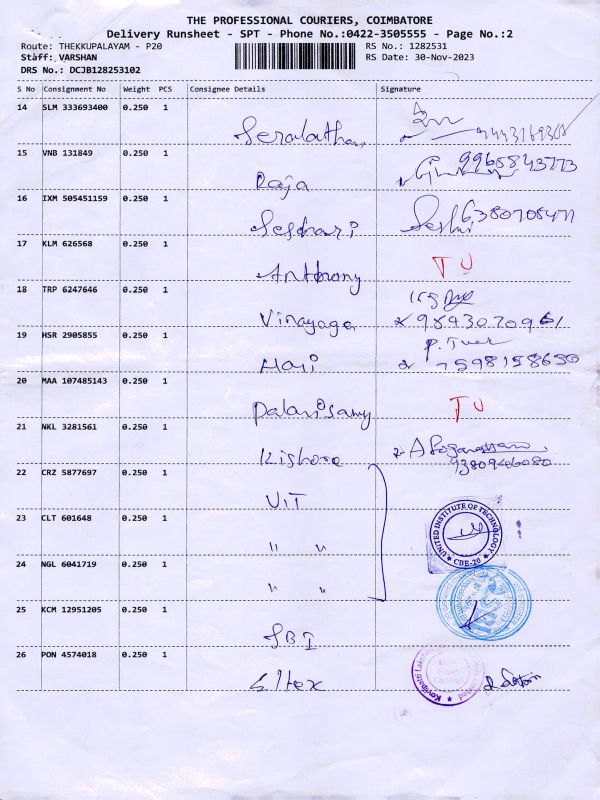 THE PROFESSIONAL COURIERS, COIMBATORE
Delivery Runsheet - SPT - Phone No.:0422-3505555 - Page No.:2
Route: THEKKUPALAYAM - P20
RS No.: 1282531
Staff: VARSHAN
RS Date: 30-Nov-2023
DRS No.: DCJB128253102
S No Consignment No Weight PCS Consignee Details Signature
14 SLM 333693400 0.250 1
Seralathan
15 VNB 131849 0.250 1 9965843773
Raja
16 IXM 505451159 0.250 1 Seshu 6380708471
Seshari
17 KLM 626568 0.250 1 TU
Anthony
18 TRP 6247646 0.250 1
Vinayaga 9843070961
19 HSR 2905855 0.250 1
Hari 7598158650
20 MAA 107485143 0.250 1 TU
Palanisamy
21 NKL 3281561 0.250 1
Kishore 9380946080
22 CRZ 5877697 0.250 1
UIT
23 CLT 601648 0.250 1 UNITED INSTITUTE OF TECHNOLOGY
" " CBE-20
24 NGL 6041719 0.250 1
" "
25 KCM 12951205 0.250 1
SBI
26 PON 4574018 0.250 1
Eltex